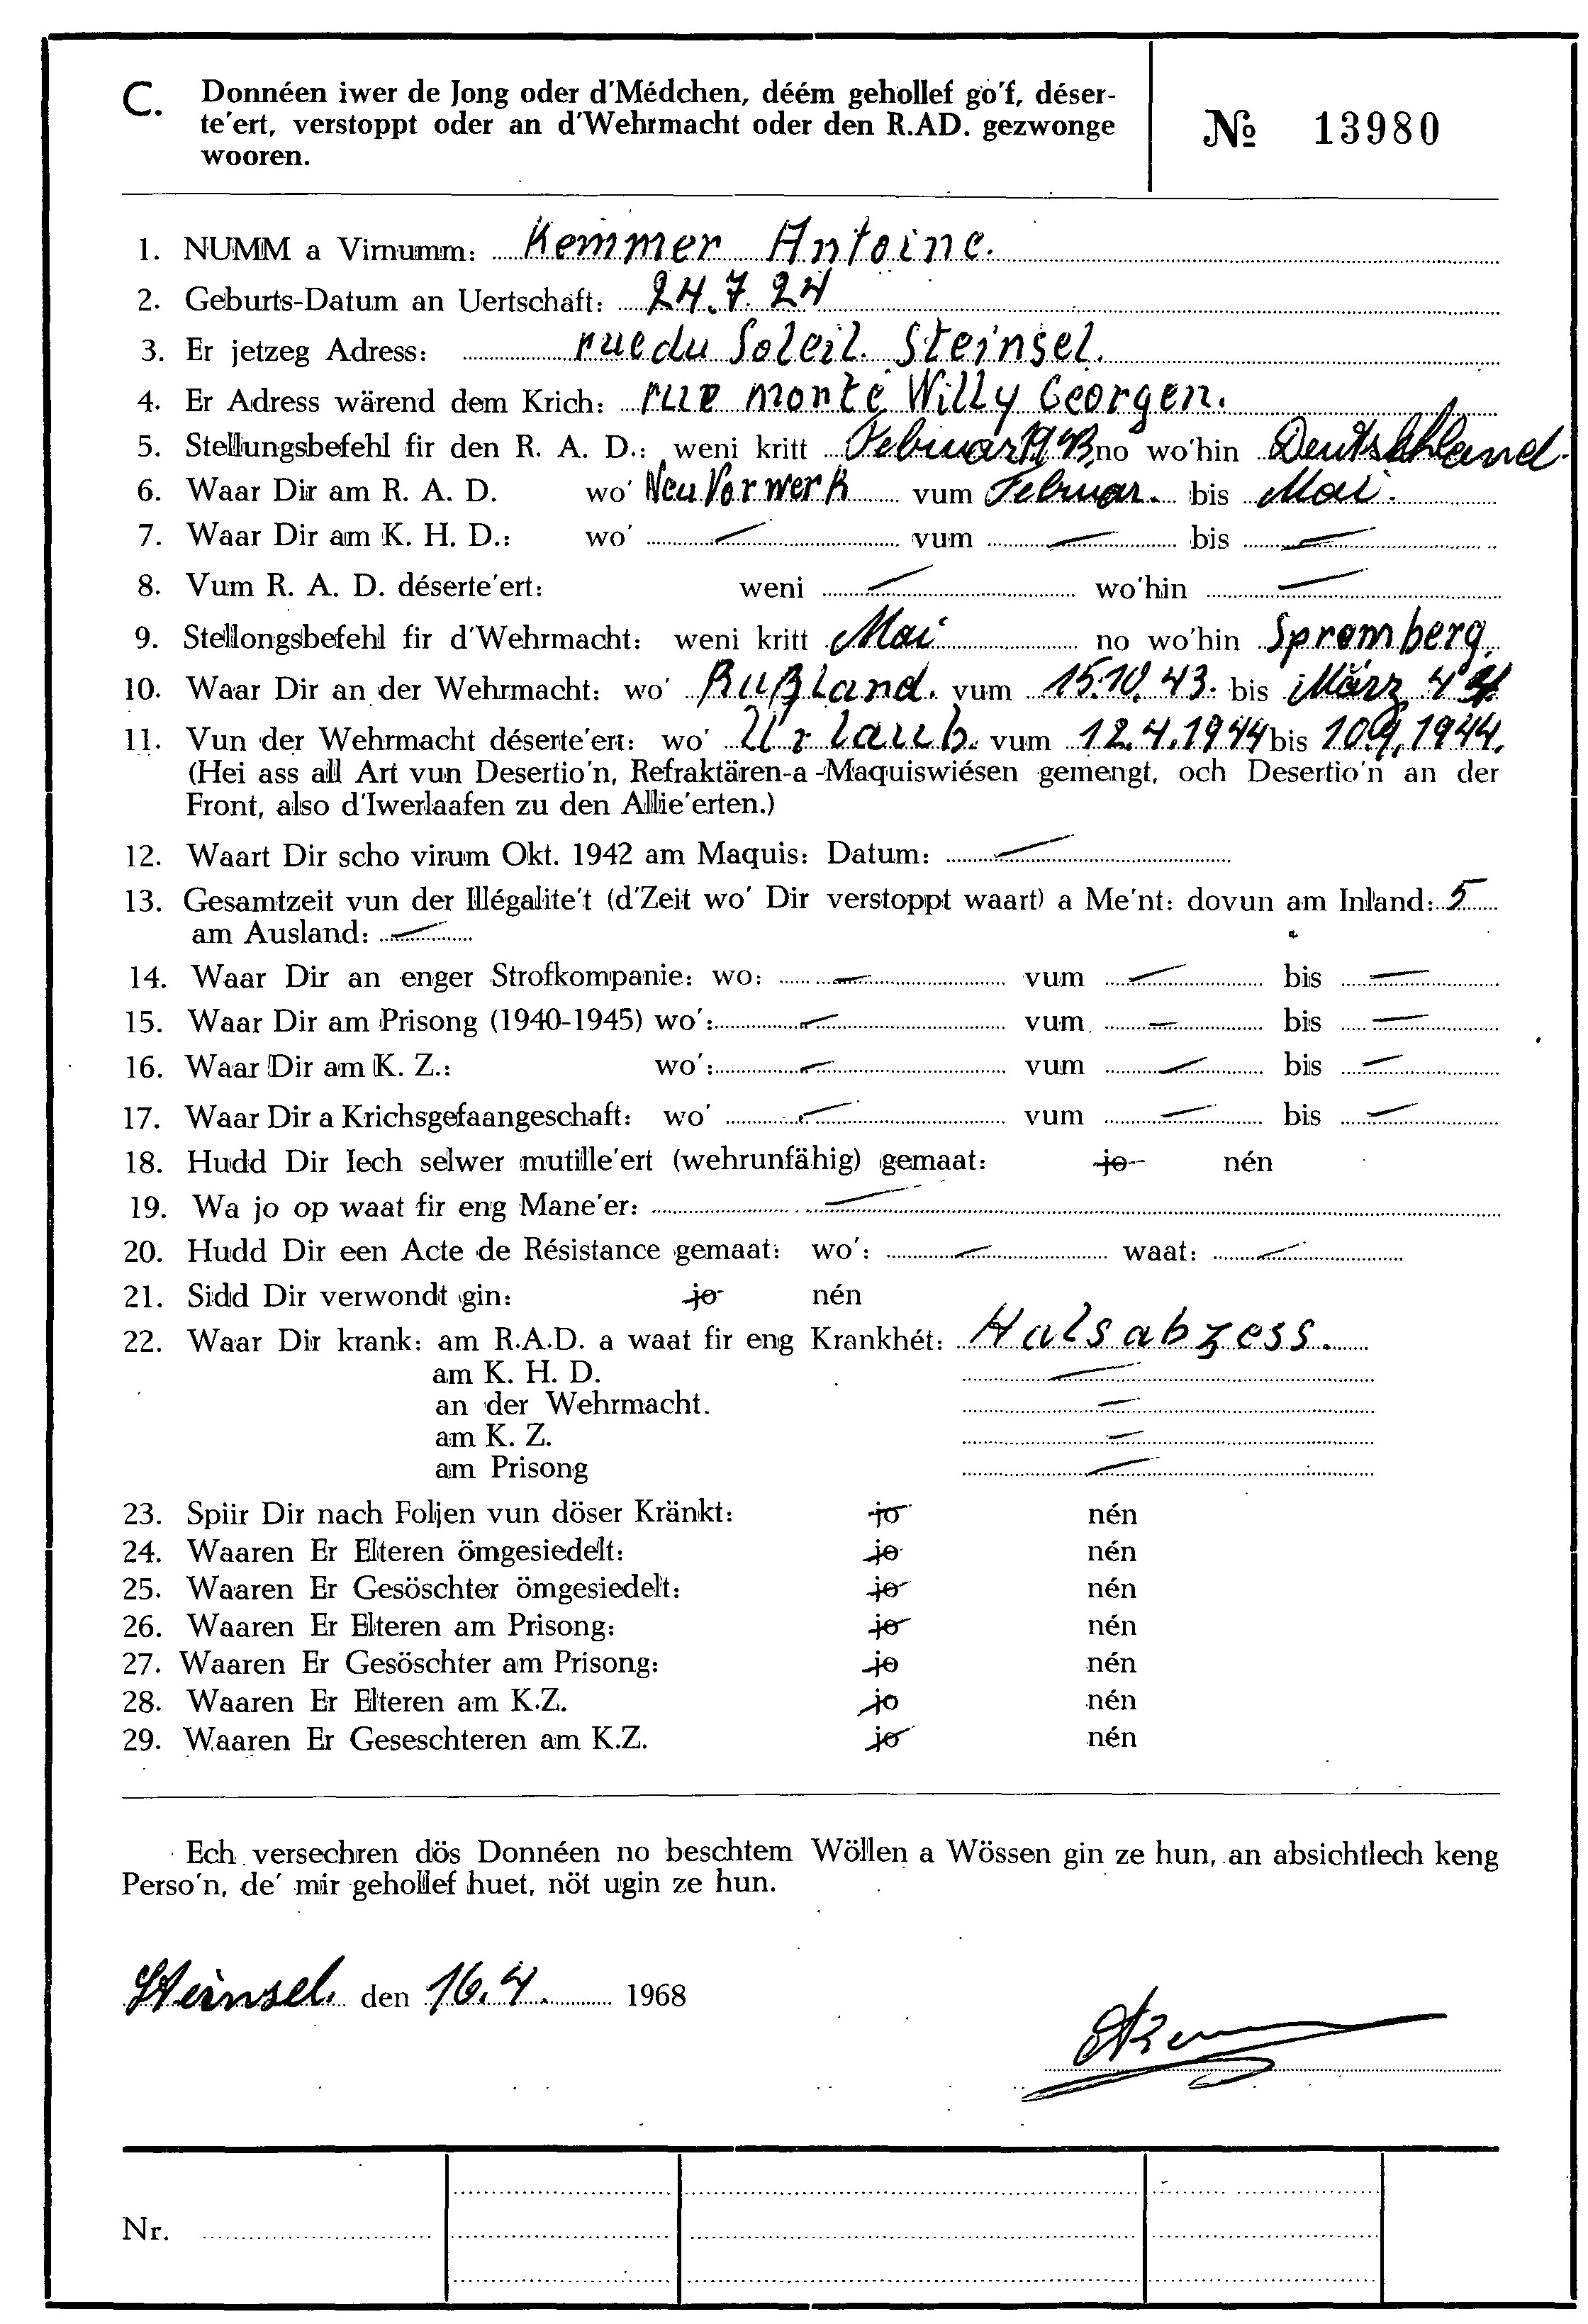 C. Donnéen iwer de Jong oder d'Médchen, déém gehollef go'f, déser-
te'ert, verstoppt oder an d'Wehrmacht oder den R.AD. gezwonge
wooren.
№ 13980
1. NUMM a Virnumm: Kemmer Antoine.
2. Geburts-Datum an Uertschaft: 24.7.24
3. Er jetzeg Adress: rue du Soleil. Steinsel.
4. Er Adress wärend dem Krich: rue monté Willy Georgen.
5. Stellungsbefehl fir den R. A. D.: weni kritt Februar 1943 no wo'hin Deutschland.
6. Waar Dir am R. A. D. wo' Neu Vorwerk vum Februar. bis Mai.
7. Waar Dir am K. H. D.: wo' — vum — bis —
8. Vum R. A. D. déserte'ert: weni — wo'hin —
9. Stellongsbefehl fir d'Wehrmacht: weni kritt Mai no wo'hin Spremberg.
10. Waar Dir an der Wehrmacht: wo' Rußland. vum 15.10.43. bis März 44
11. Vun der Wehrmacht déserte'ert: wo' Urlaub. vum 12.4.1944 bis 10.9.1944.
(Hei ass all Art vun Desertio'n, Refraktären-a-Maquiswiésen gemengt, och Desertio'n an der
Front, also d'Iwerlaafen zu den Allie'erten.)
12. Waart Dir scho virum Okt. 1942 am Maquis: Datum: —
13. Gesamtzeit vun der Illégalite't (d'Zeit wo' Dir verstoppt waart) a Me'nt: dovun am Inland: 5
am Ausland: —
14. Waar Dir an enger Strofkompanie: wo: — vum — bis —
15. Waar Dir am Prisong (1940-1945) wo': — vum — bis —
16. Waar Dir am K. Z.: wo': — vum — bis —
17. Waar Dir a Krichsgefaangeschaft: wo' — vum — bis —
18. Hudd Dir Iech selwer mutille'ert (wehrunfähig) gemaat: jo nén
19. Wa jo op waat fir eng Mane'er: —
20. Hudd Dir een Acte de Résistance gemaat: wo': — waat: —
21. Sidd Dir verwondt gin: jo nén
22. Waar Dir krank: am R.A.D. a waat fir eng Krankhét: Halsabzess.
am K. H. D. —
an der Wehrmacht. —
am K. Z. —
am Prisong —
23. Spiir Dir nach Foljen vun döser Kränkt: jo nén
24. Waaren Er Elteren ömgesiedelt: jo nén
25. Waaren Er Gesöschter ömgesiedelt: jo nén
26. Waaren Er Elteren am Prisong: jo nén
27. Waaren Er Gesöschter am Prisong: jo nén
28. Waaren Er Elteren am K.Z. jo nén
29. Waaren Er Geseschteren am K.Z. jo nén
Ech versechren dös Donnéen no beschtem Wöllen a Wössen gin ze hun, an absichtlech keng
Perso'n, de' mir gehollef huet, nöt ugin ze hun.
Steinsel. den 16.4. 1968
Nr.